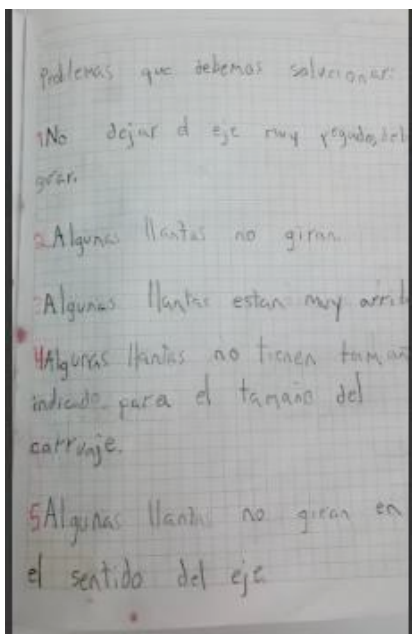 Problemas que debemos solucionar:
1No dejar el eje muy pegado, deb
girar.
2Algunas llantas no giran.
3Algunas llantas estan muy arrib
4Algunas llantas no tienen tamañ
indicado para el tamaño del
carruaje.
5Algunas llantas no giran en
el sentido del eje